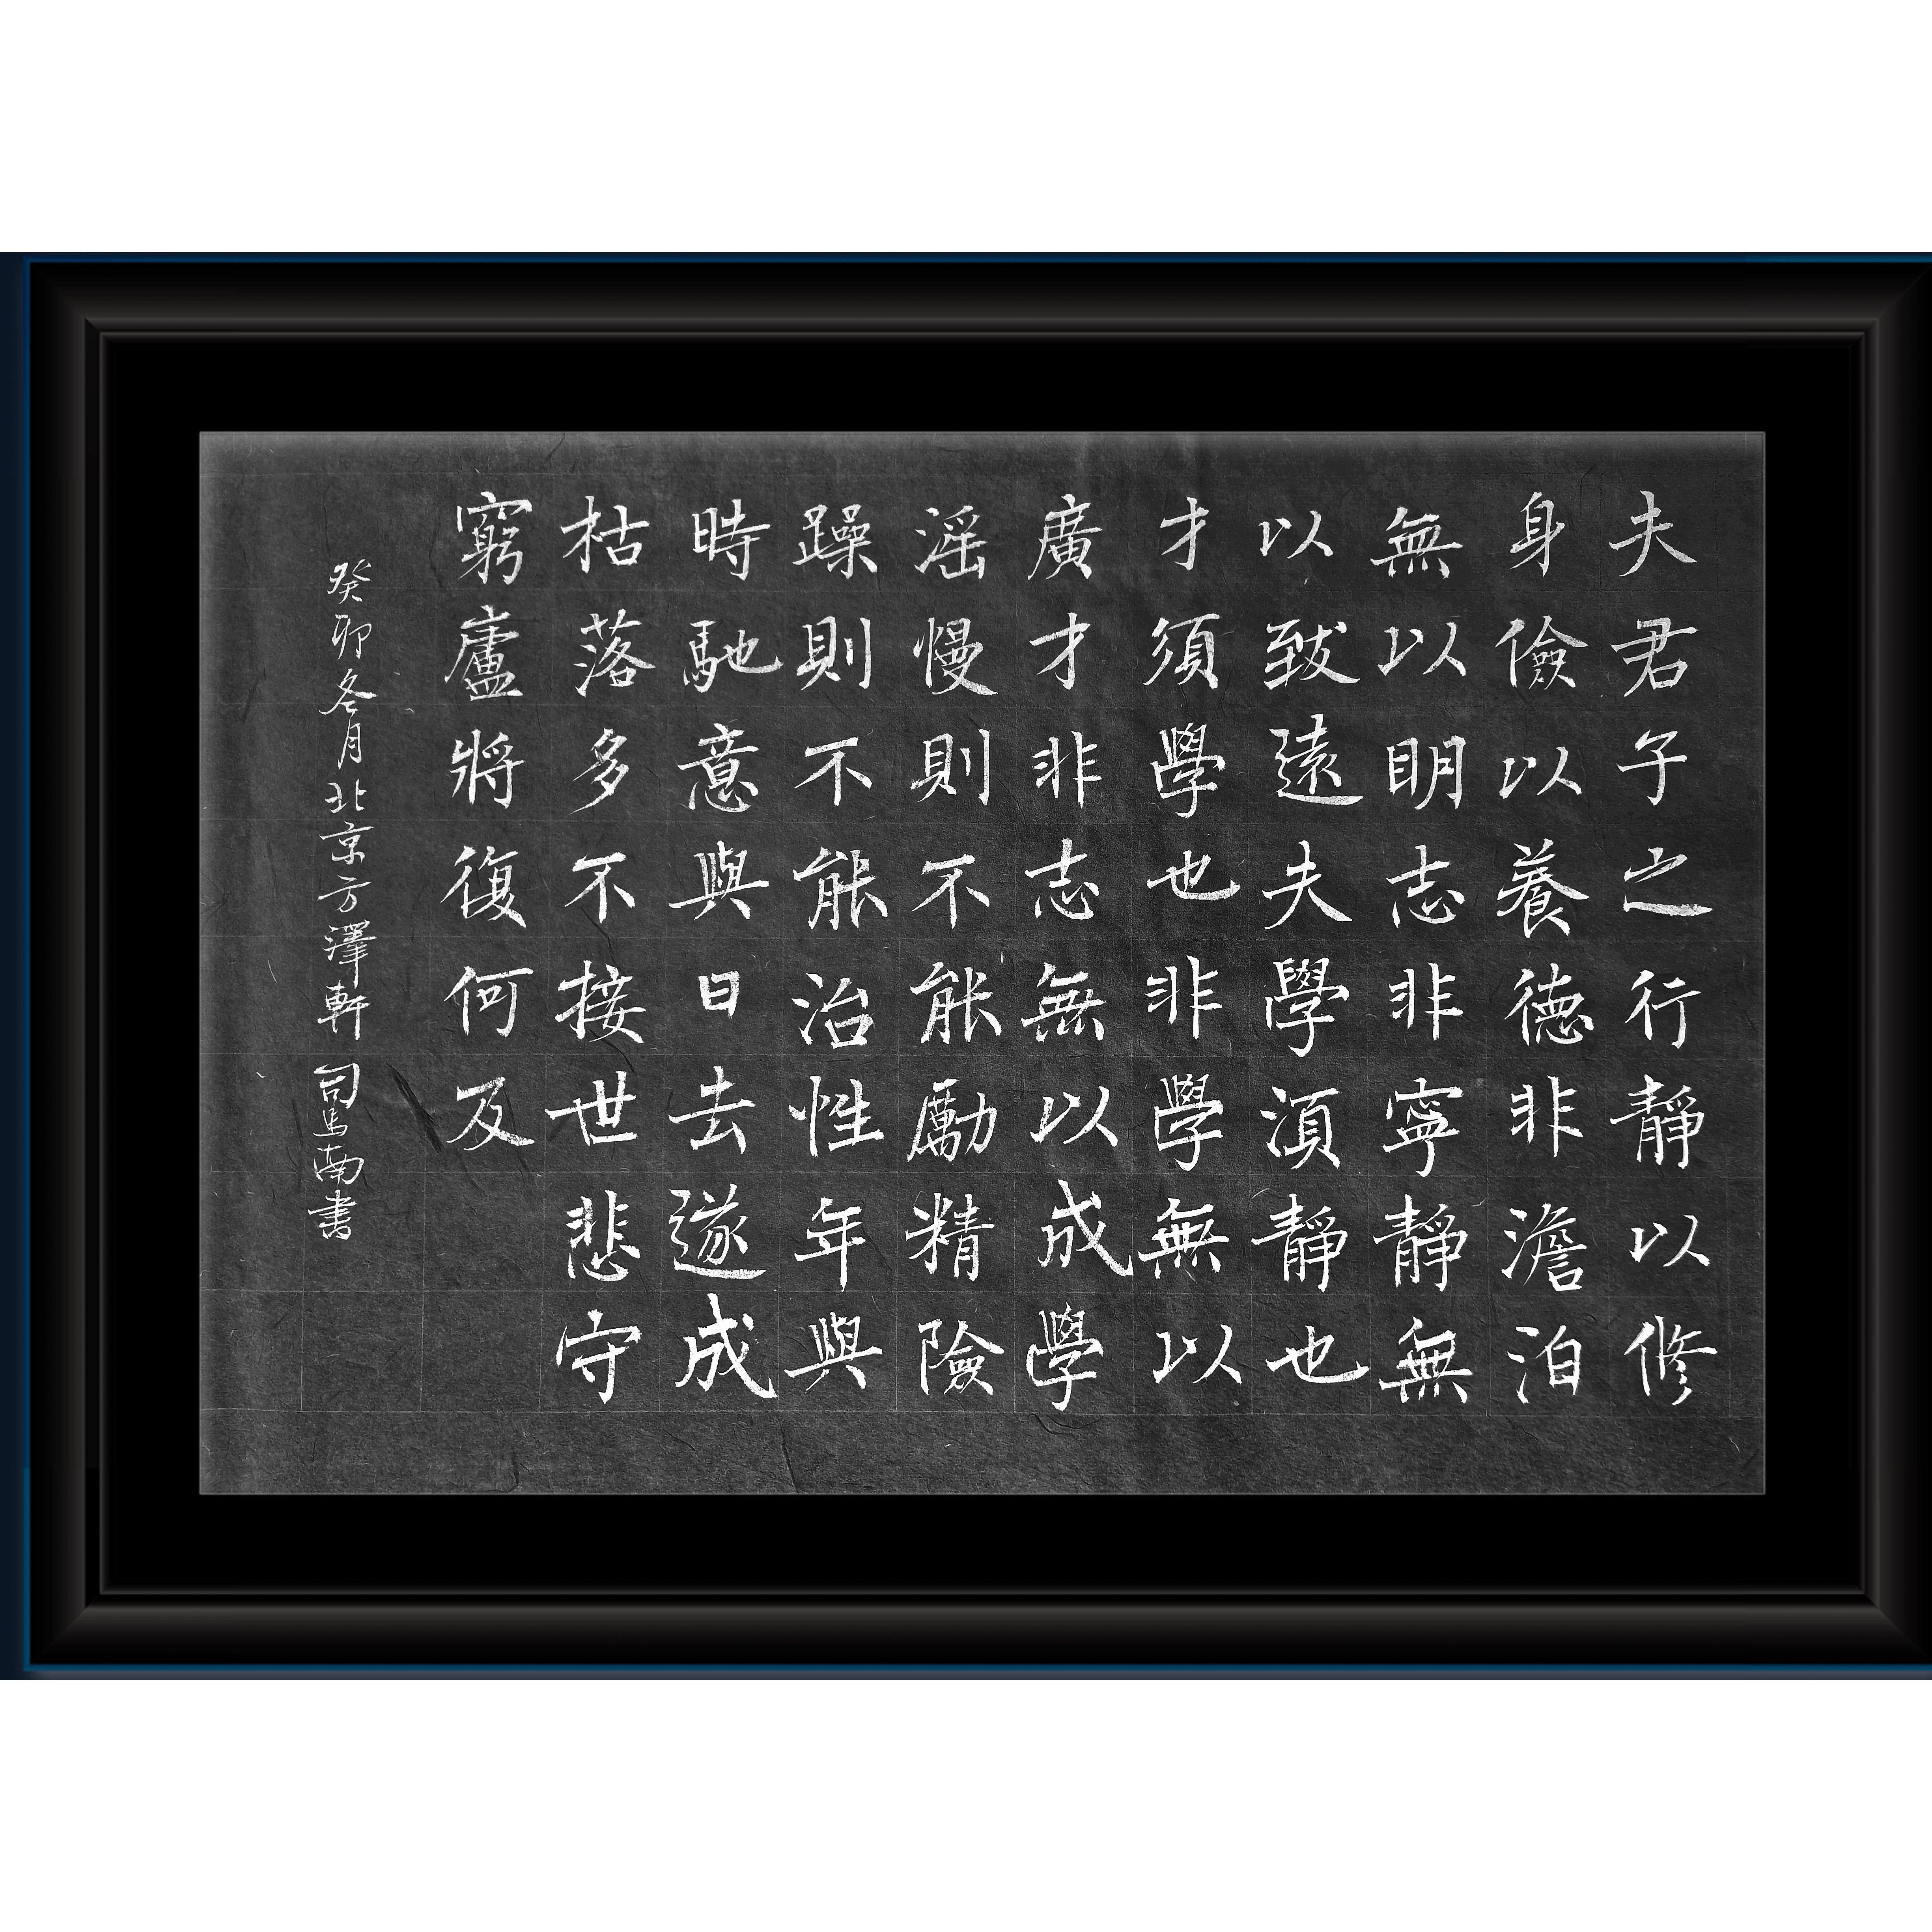 夫君子之行靜以修
身儉以養德非澹泊
無以明志非寧靜無
以致遠夫學須靜也
才須學也非學無以
廣才非志無以成學
滛慢則不能勵精險
躁則不能治性年與
時馳意與日去遂成
枯落多不接世悲守
窮廬將復何及
癸卯冬月北京方澤軒司馬南書